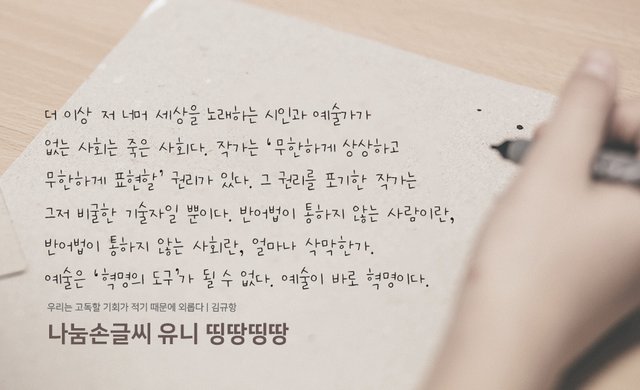 더 이상 저 너머 세상을 노래하는 시인과 예술가가
없는 사회는 죽은 사회다. 작가는 ‘무한하게 상상하고
무한하게 표현할’ 권리가 있다. 그 권리를 포기한 작가는
그저 비굴한 기술자일 뿐이다. 반어법이 통하지 않는 사람이란,
반어법이 통하지 않는 사회란, 얼마나 삭막한가.
예술은 ‘혁명의 도구’가 될 수 없다. 예술이 바로 혁명이다.
우리는 고독할 기회가 적기 때문에 외롭다 | 김규항
나눔손글씨 유니 띵땅띵땅